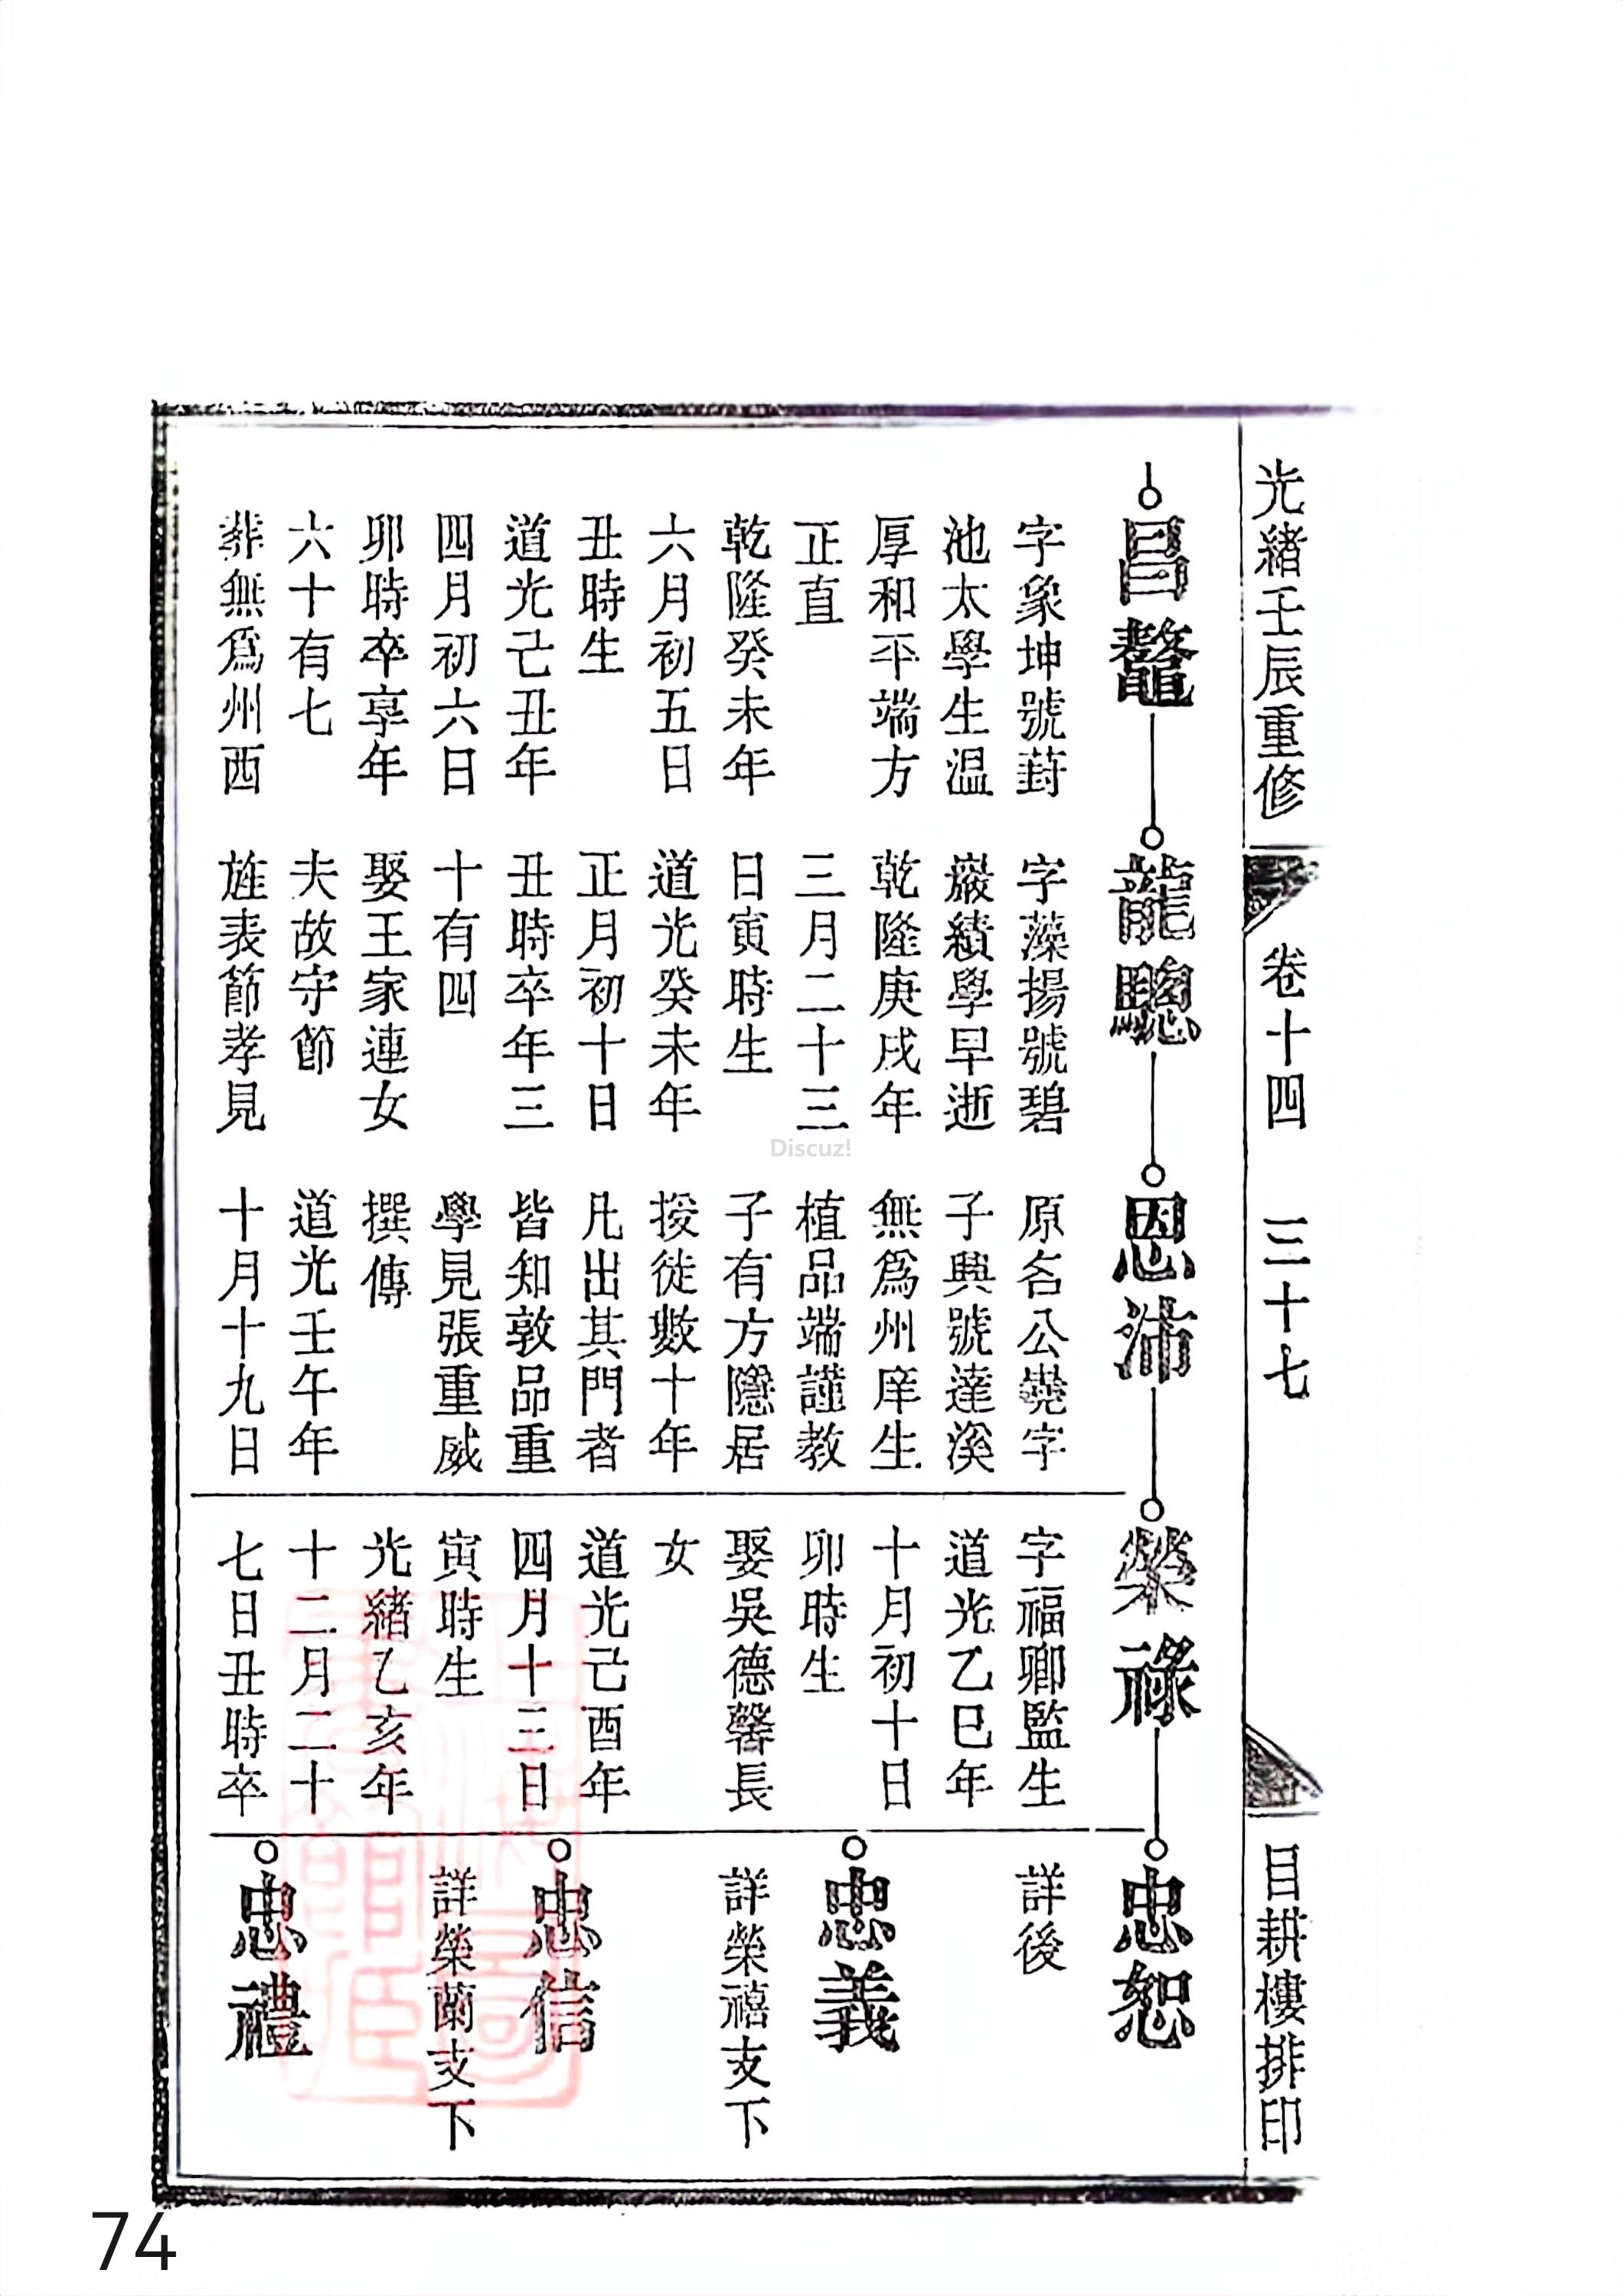 光緒壬辰重修
卷十四
三十七
目耕樓排印
昌鼇
字象坤號葑
池太學生温
厚和平端方
正直
乾隆癸未年
六月初五日
丑時生
道光己丑年
四月初六日
卯時卒享年
六十有七
葬無爲州西
龍驄
字藻揚號碧
巖績學早逝
乾隆庚戌年
三月二十三
日寅時生
道光癸未年
正月初十日
丑時卒年三
十有四
娶王家連女
夫故守節
旌表節孝見
恩沛
原名公燮字
子興號達溪
無爲州庠生
植品端謹教
子有方隱居
授徒數十年
凡出其門者
皆知敦品重
學見張重威
撰傳
道光壬午年
十月十九日
榮祿
字福卿監生
道光乙巳年
十月初十日
卯時生
娶吳德馨長
女
道光己酉年
四月十三日
寅時生
光緒乙亥年
十二月二十
七日丑時卒
忠恕
詳後
忠義
詳榮禧支下
忠信
詳榮蘭支下
忠禮
Discuz!
74